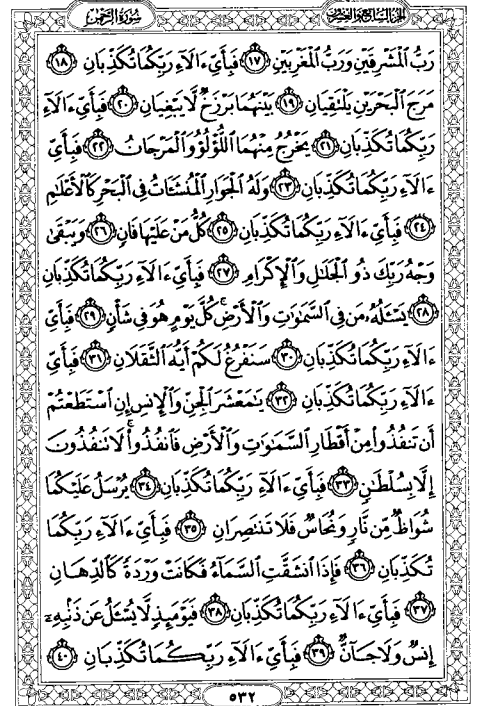 الجزء السابع والعشرون سورة الرحمن
رَبُّ الْمَشْرِقَيْنِ وَرَبُّ الْمَغْرِبَيْنِ ١٧ فَبِأَيِّ ءَالَآءِ رَبِّكُمَا تُكَذِّبَانِ ١٨
مَرَجَ الْبَحْرَيْنِ يَلْتَقِيَانِ ١٩ بَيْنَهُمَا بَرْزَخٌ لَّا يَبْغِيَانِ ٢٠ فَبِأَيِّ ءَالَآءِ
رَبِّكُمَا تُكَذِّبَانِ ٢١ يَخْرُجُ مِنْهُمَا اللُّؤْلُؤُ وَالْمَرْجَانُ ٢٢ فَبِأَيِّ
ءَالَآءِ رَبِّكُمَا تُكَذِّبَانِ ٢٣ وَلَهُ الْجَوَارِ الْمُنشَـَٔاتُ فِي الْبَحْرِ كَالْأَعْلَٰمِ
٢٤ فَبِأَيِّ ءَالَآءِ رَبِّكُمَا تُكَذِّبَانِ ٢٥ كُلُّ مَنْ عَلَيْهَا فَانٍ ٢٦ وَيَبْقَىٰ
وَجْهُ رَبِّكَ ذُو الْجَلَٰلِ وَالْإِكْرَامِ ٢٧ فَبِأَيِّ ءَالَآءِ رَبِّكُمَا تُكَذِّبَانِ
٢٨ يَسْـَٔلُهُۥ مَن فِي السَّمَٰوَٰتِ وَالْأَرْضِ ۚ كُلَّ يَوْمٍ هُوَ فِي شَأْنٍ ٢٩ فَبِأَيِّ
ءَالَآءِ رَبِّكُمَا تُكَذِّبَانِ ٣٠ سَنَفْرُغُ لَكُمْ أَيُّهَ الثَّقَلَانِ ٣١ فَبِأَيِّ
ءَالَآءِ رَبِّكُمَا تُكَذِّبَانِ ٣٢ يَٰمَعْشَرَ الْجِنِّ وَالْإِنسِ إِنِ اسْتَطَعْتُمْ
أَن تَنفُذُوا۟ مِنْ أَقْطَارِ السَّمَٰوَٰتِ وَالْأَرْضِ فَانفُذُوا۟ ۚ لَا تَنفُذُونَ
إِلَّا بِسُلْطَٰنٍ ٣٣ فَبِأَيِّ ءَالَآءِ رَبِّكُمَا تُكَذِّبَانِ ٣٤ يُرْسَلُ عَلَيْكُمَا
شُوَاظٌ مِّن نَّارٍ وَنُحَاسٌ فَلَا تَنتَصِرَانِ ٣٥ فَبِأَيِّ ءَالَآءِ رَبِّكُمَا
تُكَذِّبَانِ ٣٦ فَإِذَا انشَقَّتِ السَّمَآءُ فَكَانَتْ وَرْدَةً كَالدِّهَانِ
٣٧ فَبِأَيِّ ءَالَآءِ رَبِّكُمَا تُكَذِّبَانِ ٣٨ فَيَوْمَئِذٍ لَّا يُسْـَٔلُ عَن ذَنۢبِهِۦٓ
إِنسٌ وَلَا جَآنٌّ ٣٩ فَبِأَيِّ ءَالَآءِ رَبِّكُمَا تُكَذِّبَانِ ٤٠
٥٣٢